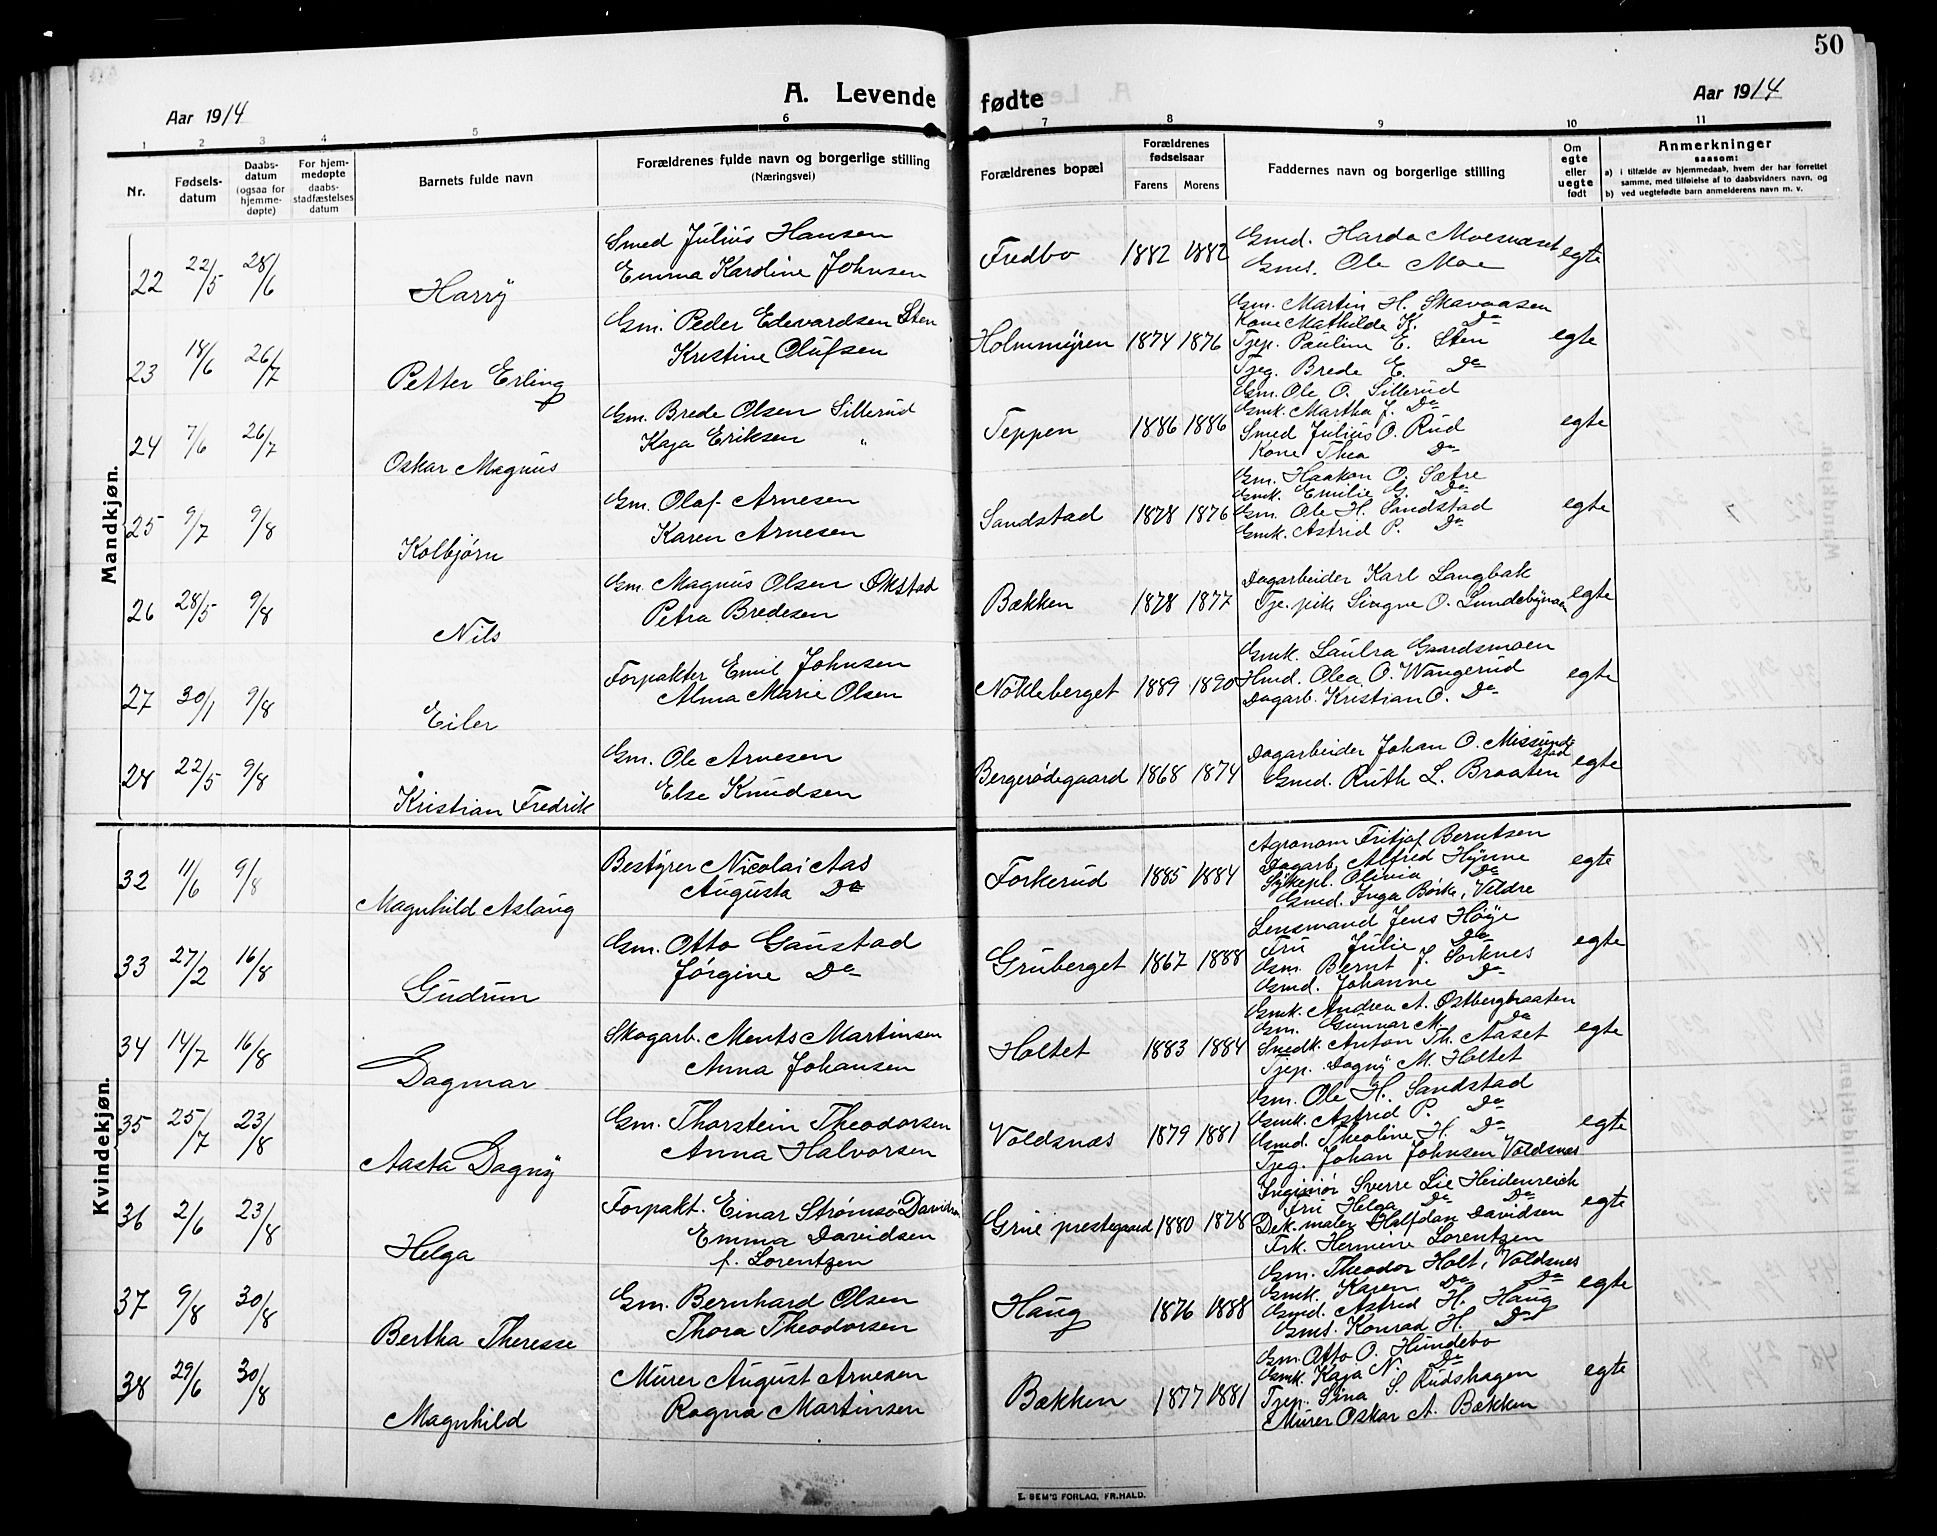 50
Aar 1914
A. Levende fødte
Aar 1914
1 2 3 4 5 6 7 8 9 10 11
Nr.
Fødsels-datum
Daabs-datum (ogsaa for hjemme-døpte)
For hjem-medøpte daabs-stadfæstelses datum
Barnets fulde navn
Forældrenes fulde navn og borgerlige stilling (Næringsvei)
Forældrenes bopæl
Forældrenes fødselsaar
Farens Morens
Faddernes navn og borgerlige stilling
Om egte eller uegte født
Anmerkninger
saasom:
a) i tilfælde av hjemmedaab, hvem der har forrettet samme, med tilføielse af to daabsvidners navn, og
b) ved uegtefødte barn anmelderens navn m. v.
Mandkjøn.
22 22/5 28/6 Harry
Smed Julius Hansen
Emma Karoline Johnsen
Fredbo 1882 1882
Gmd. Harda Moesvæset
Gms. Ole Moe
egte
23 14/6 26/7 Petter Erling
Gm. Peder Edevardsen Sten
Kristine Olufsen
Holmmyren 1874 1876
Gm. Martin H. Skavaasen
Kone Mathilde K. Do
Tjep. Pauline E. Sten
Tjeg. Brede E. Do
egte
24 7/6 26/7 Oskar Magnus
Gm. Brede Olsen Sillerud
Kaja Eriksen "
Teppen 1886 1886
Gm. Ole O. Sillerud
Gmk. Martha J. Do
Smed Julius O. Rud
Kone Thea Do
egte
25 9/7 9/8 Kolbjørn
Gm. Olaf Arnesen
Karen Arnesen
Sandstad 1878 1876
Gm. Haakon O. Sætre
Gmk. Emilie G. Do
Gm. Ole H. Sandstad
Gmk. Astrid P. Do
egte
26 28/5 9/8 Nils
Gm. Magnus Olsen Økstad
Petra Bredesen
Bækken 1878 1877
Dagarbeider Karl Langbak
Tje.pike Singne O. Lundebynæs
egte
27 30/1 9/8 Eiler
Forpakter Emil Johnsen
Alma Marie Olsen
Nökleberget 1889 1890
Gmk. Laulra Gaardsmoen
Hmd. Olea O. Wangerud
Dagarb. Kristian O. Do
egte
28 22/5 9/8 Kristian Fredrik
Gm. Ole Arnesen
Else Knudsen
Bergerødegaard 1868 1874
Dagarbeider Johan O. Missundstad
Gmd. Ruth L. Braaten
egte
Kvindekjøn.
32 11/6 9/8 Magnhild Aslaug
Bestyrer Nicolai Aas
Augusta Do
Forkerud 1885 1884
Agronom Fritjof Berntsen
Dagarb. Alfred Hynne
Sykepl. Olivia Do
Gmd. Inga Børke, Veldre
egte
33 27/2 16/8 Gudrun
Gm. Otto Gaustad
Jørgine Do
Gruberget 1867 1888
Lensmand Jens Høye
Fru Julie Do
Gm. Bernt J. Sorknes
Gmd. Johanne Do
egte
34 14/7 16/8 Dagmar
Skogarb. Ments Martinsen
Anna Johansen
Holtet 1883 1884
Gmk. Andrea A. Østbergbraaten
Gm. Gunnar M. Do
Smedk. Anton Th. Aaset
Tjep. Dagny M. Holtet
egte
35 25/7 23/8 Aasta Dagny
Gm. Thorstein Theodorsen
Anna Halvorsen
Voldsnæs 1879 1881
Gm. Ole H. Sandstad
Gmk. Astrid P. Do
Gmd. Theoline H. Do
Tjeg. Johan Johnsen Voldsnes
egte
36 2/6 23/8 Helga
Forpakt. Einar Strømsø Davidsen
Emma Davidsen
f. Lorentzen
Grue prestegaard 1880 1878
Ingeniør Sverre Lie Heidenreich
Fru Helga Do Do
Dek.maler Halfdan Davidsen
Frk. Hermine Lorentzen
egte
37 9/8 30/8 Bertha Theresse
Gm. Bernhard Olsen
Thora Theodorsen
Haug 1876 1888
Gm. Theodor Holt, Voldsnes
Gmk. Karen Do Do
Gmd. Astrid H. Haug
Gms. Konrad H. Do
egte
38 29/6 30/8 Magnhild
Murer August Arnesen
Ragna Martinsen
Bækken 1877 1881
Gm. Otto O. Hundebo
Gmk. Kaja N. Do
Tjep. Sina S. Rudshagen
Murer Oskar A. Bækken
egte
E. SEM'S FORLAG, FR.HALD.